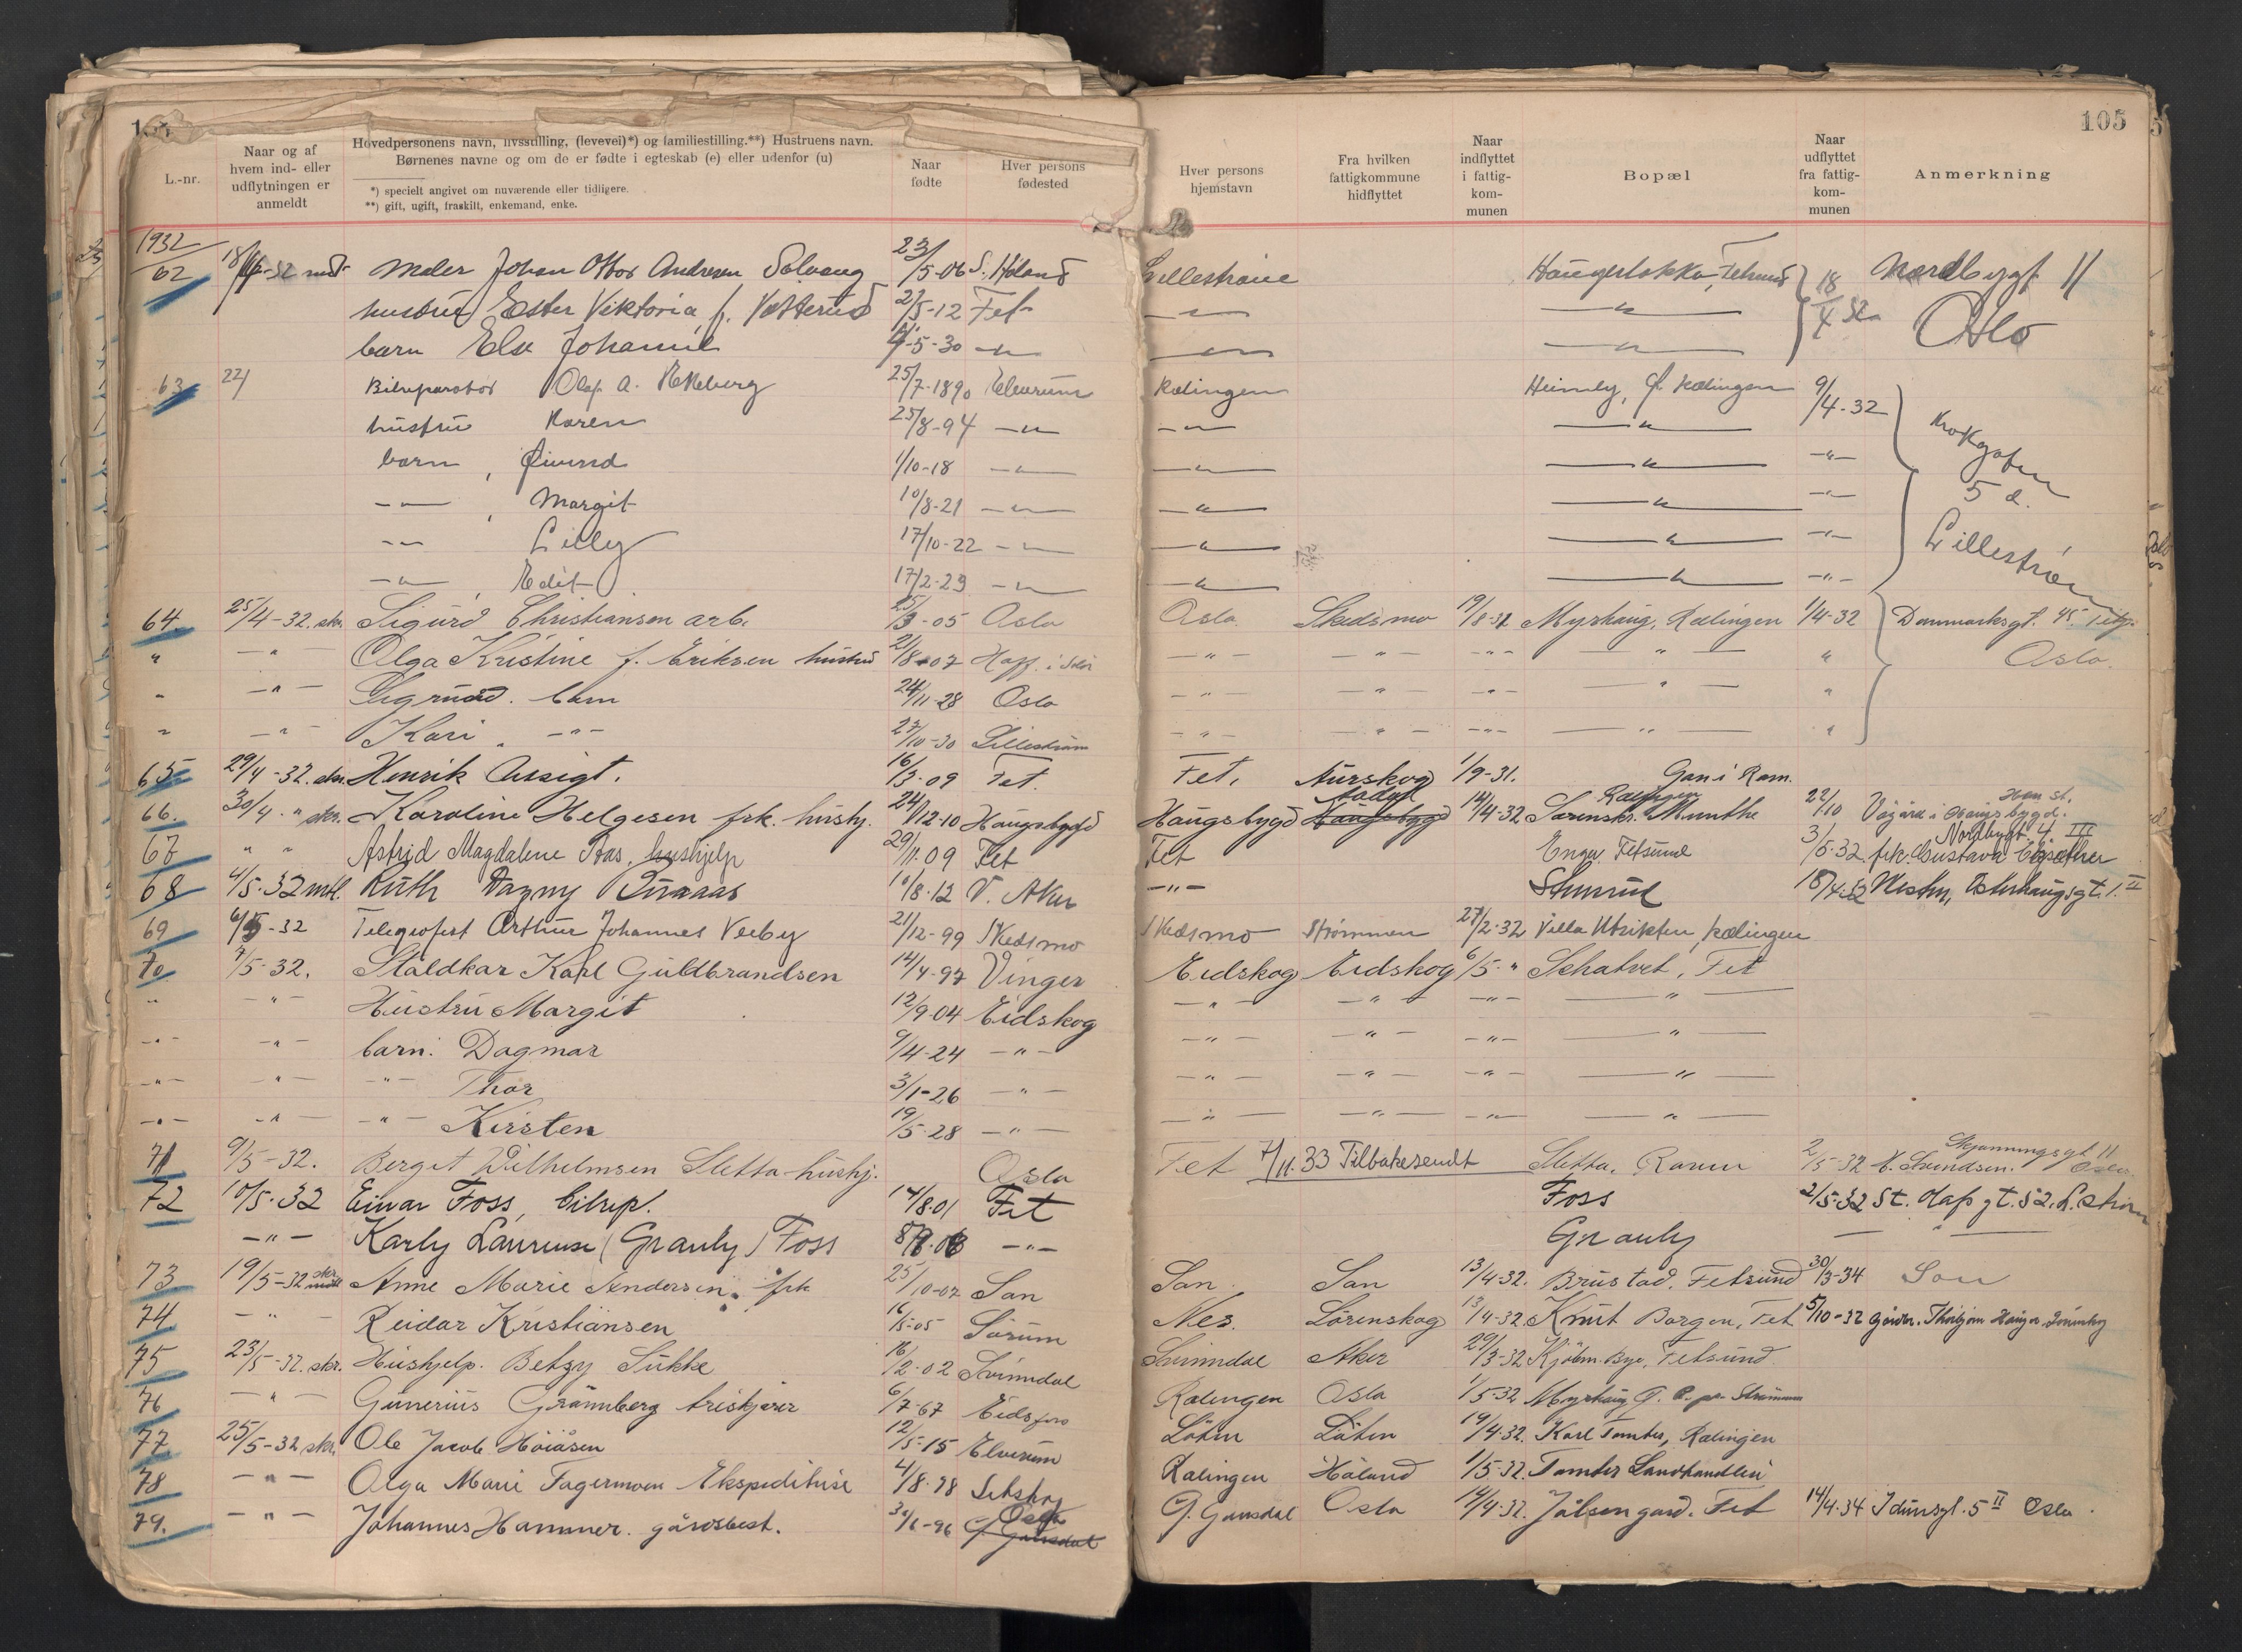 105
L.-nr.
Naar og af hvem ind- eller udflytningen er anmeldt
Hovedpersonens navn, livsstilling, (levevei)*) og familiestilling.**) Hustruens navn.
Børnenes navne og om de er fødte i egteskab (e) eller udenfor (u)
*) specielt angivet om nuværende eller tidligere.
**) gift, ugift, fraskilt, enkemand, enke.
Naar fødte
Hver persons fødested
Hver persons hjemstavn
Fra hvilken fattigkommune hidflyttet
Naar indflyttet i fattig-kom-munen
Bopæl
Naar udflyttet fra fattig-kom-munen
Anmerkning
1932
62 18/4-32 Maler Johan Ottar Andresen Solvang 23/5-06 S. Høland Lillestrøm Haugerløkka, Fetsund 18/4 32 Nordbygt. 11
hustru Ester Viktoria f. 2/5-12 Fet —"— —"— Oslo
barn Else Johanne 5-30 —"— —"— —"—
63 22/ Bilreparatør Olaf A. Ekeberg 25/7-1890 Elverum Rælingen Heimly, Ø. Rælingen 9/4-32
hustru Karen 25/8-94 —"— —"— —"— Krokgaten
barn, Øivind 1/10-18 —"— —"— —"— —"— 5 a.
—"—, Margit 10/8-21 —"— —"— —"— —"— Lillestrøm
—"— Lilly 17/10-22 —"— —"— —"— —"—
—"—, Edit 17/2-29 —"— —"— —"— —"—
64. 25/4-32. skr. Sigurd Christiansen arb. 25/3-05 Oslo Oslo Skedsmo 19/8-31 Myrhaug, Rælingen 1/4-32 Danmarksgt. 45
" —"— Olga Kristine f. Eriksen hustru 21/8-07 Hoff i Solør —"— —"— —"— —"— " Oslo.
" —"— Sigrund. barn 24/11-28 Oslo —"— —"— —"— —"— "
" —"— Kari —"— 27/10-30 Lillestrøm —"— —"— —"— —"— "
65 29/4-32. skr. Henrik Aasigt. 16/3-09 Fet. Fet. Aurskog 1/9-31. Gan i Ram.
66. 30/4 " skr. Karoline Helgesen frk. hushj. 24/12-10 Haugsbygd Haugsbygd Haugsbygd 14/4-32 Sørenskr. Munthe Rælingen 22/10 Vågård i Haugsbygd. Høn st.
67 " " Astrid Magdalene Aas, hushjelp 29/11.09 Fet Fet Enger Fetsund 3/5-32. frk. Gustava Nordbygt. 4 III
68 4/5-32 mtl. Ruth Dagny 10/8-12 V. Aker —"— 18/4-32 Østerhaugsgt. 1. II
69 6/5-32 Telegrafist Arthur Johannes Veeby 21/12-99 Skedsmo Skedsmo Strømmen 27/2-32 Villa Utsikten, Rælingen
70 7/5-32. Staldkar Karl Guldbrandsen 14/4-97 Vinger Eidskog Eidskog 6/5 " Schatvet, Fet
" —"— Hustru Margit 12/9-04 Eidskog —"— —"— —"— —"—
—"— —"— barn: Dagmar 9/4-24 —"— —"— —"— —"— —"—
—"— —"— —"— Thor 3/1-26 —"— —"— —"— —"— —"—
—"— —"— —"— Kirsten 19/5-28 —"— —"— —"— —"— —"—
71 9/5-32. Berget Wilhelmsen Sletta hushj. Oslo Fet 7/11.33 Tilbakesendt Sletta, 2/5-32 Oslo
72 10/5-32 Einar Foss, bilrep. 14/8.01 Fet Foss 2/5-32 St. Olafs gt. 52. L.strøm
—"— Karly Laurense (Granly) Foss —"— Granly —"—
73 19/5-32 Anne Marie Andersen, frk 25/10-07 Son Son Son 13/4-32. Brustad, Fetsund 30/3-34 Son
74 —"— Reidar Kristiansen 16/5-05 Sørum Nes. Lørenskog 13/4-32 Knut Borgen, Fet 5/10-32
75 23/5-32. skr. Hushjelp. Betzy Sukke 16/2-02 Svinndal Svinndal Aker 29/3-32 Kjøbm. Bye, Fetsund
76 —"— Gunerius Grønnberg 6/7-67 Eidsfoss Rælingen Oslo 1/5-32
77 25/5-32 skr. Ole Jacob Høiåsen 12/5-15 Elverum Løten Løten 19/4-32. Karl Tomter, Rælingen
78 —"— Olga Marie Fagermoen Ekspeditrise 4/8-98 Setskog Rælingen Høland 1/5-32. Tomter Landhandleri
79. —"— Johannes Hammer. gårdsbest. 30/6-96 Oslo Oslo 14/4-32. Jålsen gård. Fet 14/4-34 Idunsgt. 5 II Oslo